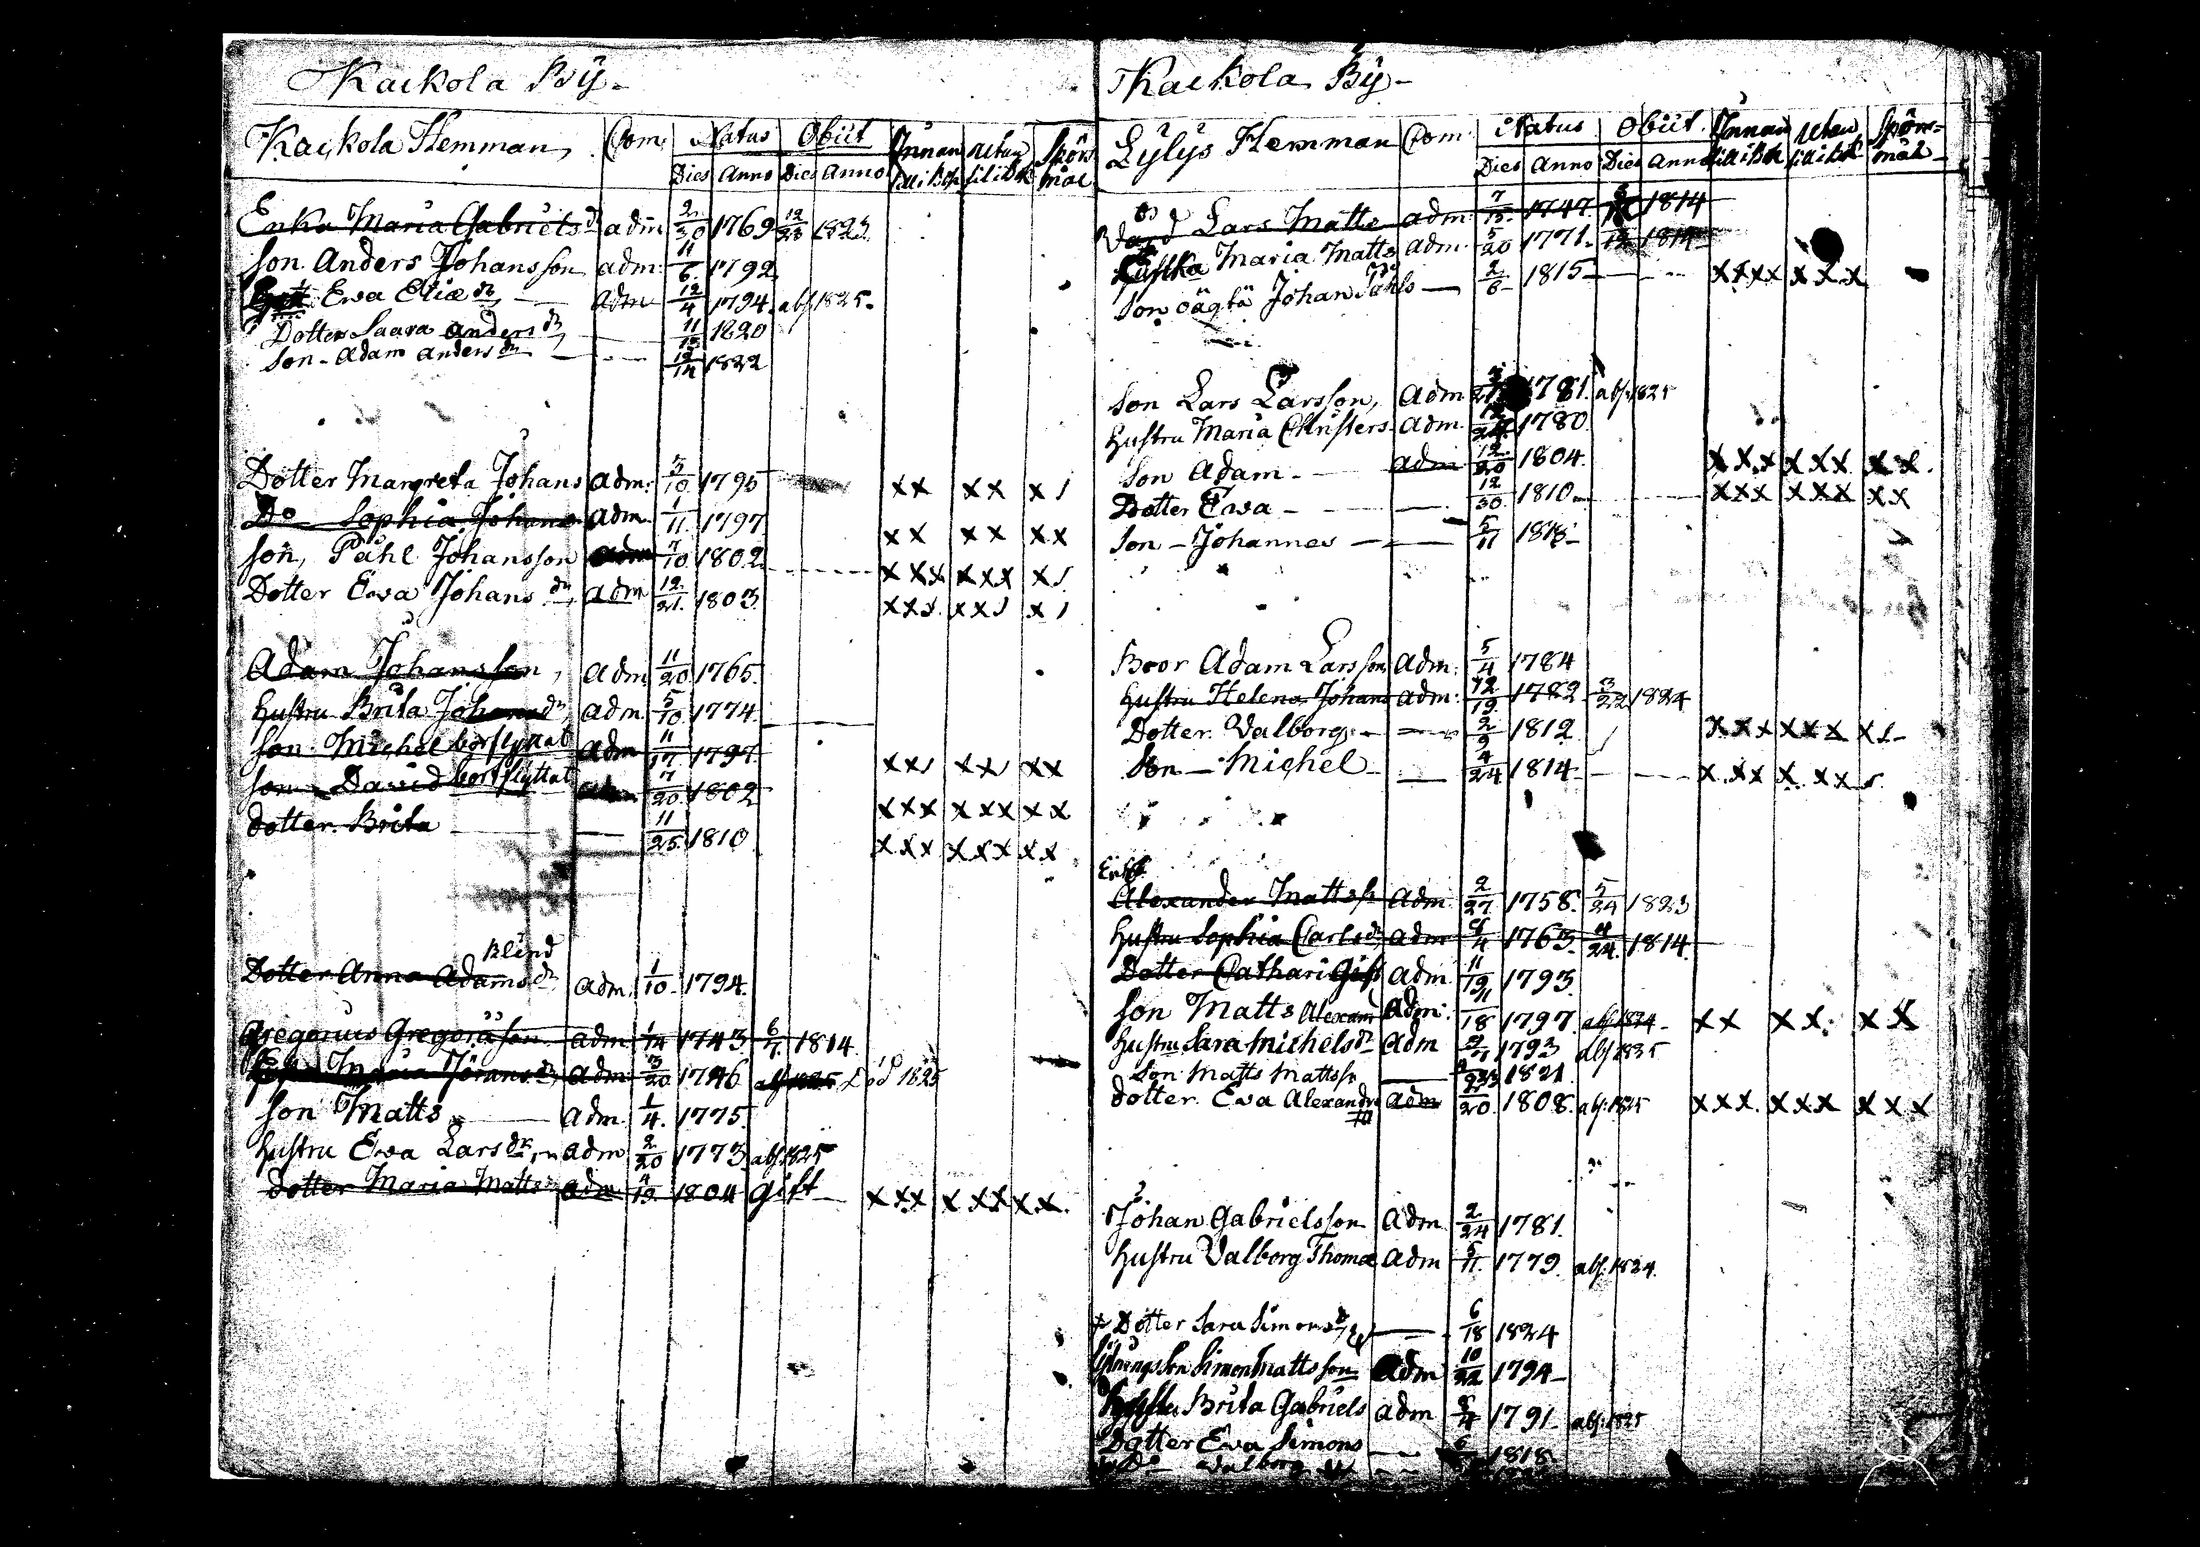 Kaikola Bÿ-
Kaikola Hemman, Com: Natus Obiit Innan utan Spörs
Dies Anno Dies Anno mål
Enka Maria Gabriels dr adm 2/20 1769 12/23 1823
Son Anders Johansson adm: 11/6 1792
Ewa Eliæ dr adm 12/4 1794. abs 1825.
Dotter Saara Anders dr 11/13 1820
Son - Adam Anders 12/14 1822
Dotter Margreta Johans adm: 3/10 1795 xx xx x/
Do Sophia Johans adm. 1/11 1797 xx xx xx
Son, Påhl Johansson adm 7/10 1802 xxx xxx x/
Dotter Ewa Johans dr adm 12/21 1803 xxx xx/ x/
Adam Johansson, adm 11/20 1765.
hustru Brita Johans dr, adm 5/10 1774
Son Michel bortflyttat adm 11/17 1797 xx/ xx/ xx
Son David bortflyttat adm 7/20 1802 xxx xxx xx
dotter Brita 11/25 1810 xxx xxx xx
Blind
Dotter Anna Adams dr adm. 1/10 1794.
Gregorius Gregorisson adm 1/14 1743 6/7 1814
Maria Jörans dr adm 3/20 1746 abs 1825 död 1825
Son Matts adm. 1/4. 1775.
hustru Ewa Lars dr adm 2/20 1773 abs 1825
dotter Maria Matts dr adm 4/19 1804 gift xxx xxx xx
Kaikola Bÿ-
Lylys Hemman Com: Natus Obiit. Innan utan Spörs=
Dies Anno Dies Anno mål
Lars Matts adm. 7/15 1747. 1814
Maria Matts adm. 5/20 1771. 12 1814
Son oägta Johan Påhls 2/6 1815 xxxx xxx
Son Lars Larsson, adm 1781. abs: 1825
hustru Maria Christers adm. 12/24 1780
Son Adam adm 12/20 1804. xxx xxx xx.
Dotter Ewa 12/30 1810 xxx xxx xx
Son - Johannes 5/11 1818
Bror Adam Larsson adm: 5/4 1784
hustru Helena Johans adm: 12/19 1782 3/22 1824
Dotter Valborg 2/9 1812 xxx xxx x/
Son - Michel 4/24 1814 xxx xxx /
Enkl
Alexander Mattss adm. 2/27 1758. 5/24 1823
hustru Sophia Carls dr adm 1763 4/24 1814.
Dotter Cathari Gift adm 11/19 1793
Son Matts Alexand Adm. 11/18 1797 abs 1824 xx xx xx
hustru Sara Michels dr adm 1793 abs 1825
Son Matts Mattss 1821
dotter. Ewa Alexand adm 20 1808. abs: 1825 xxx xxx xxx
Johan Gabrielsson adm 2/24 1781.
hustru Valborg Thomæ adm 5/11 1779. abs: 1824.
Dotter Sara Simons dr 6/18 1824
Simon Mattsson adm 10/22 1794
Brita Gabriels adm 8/4 1791 abs: 1825
Dotter Ewa Simons 1818
Do Valborg